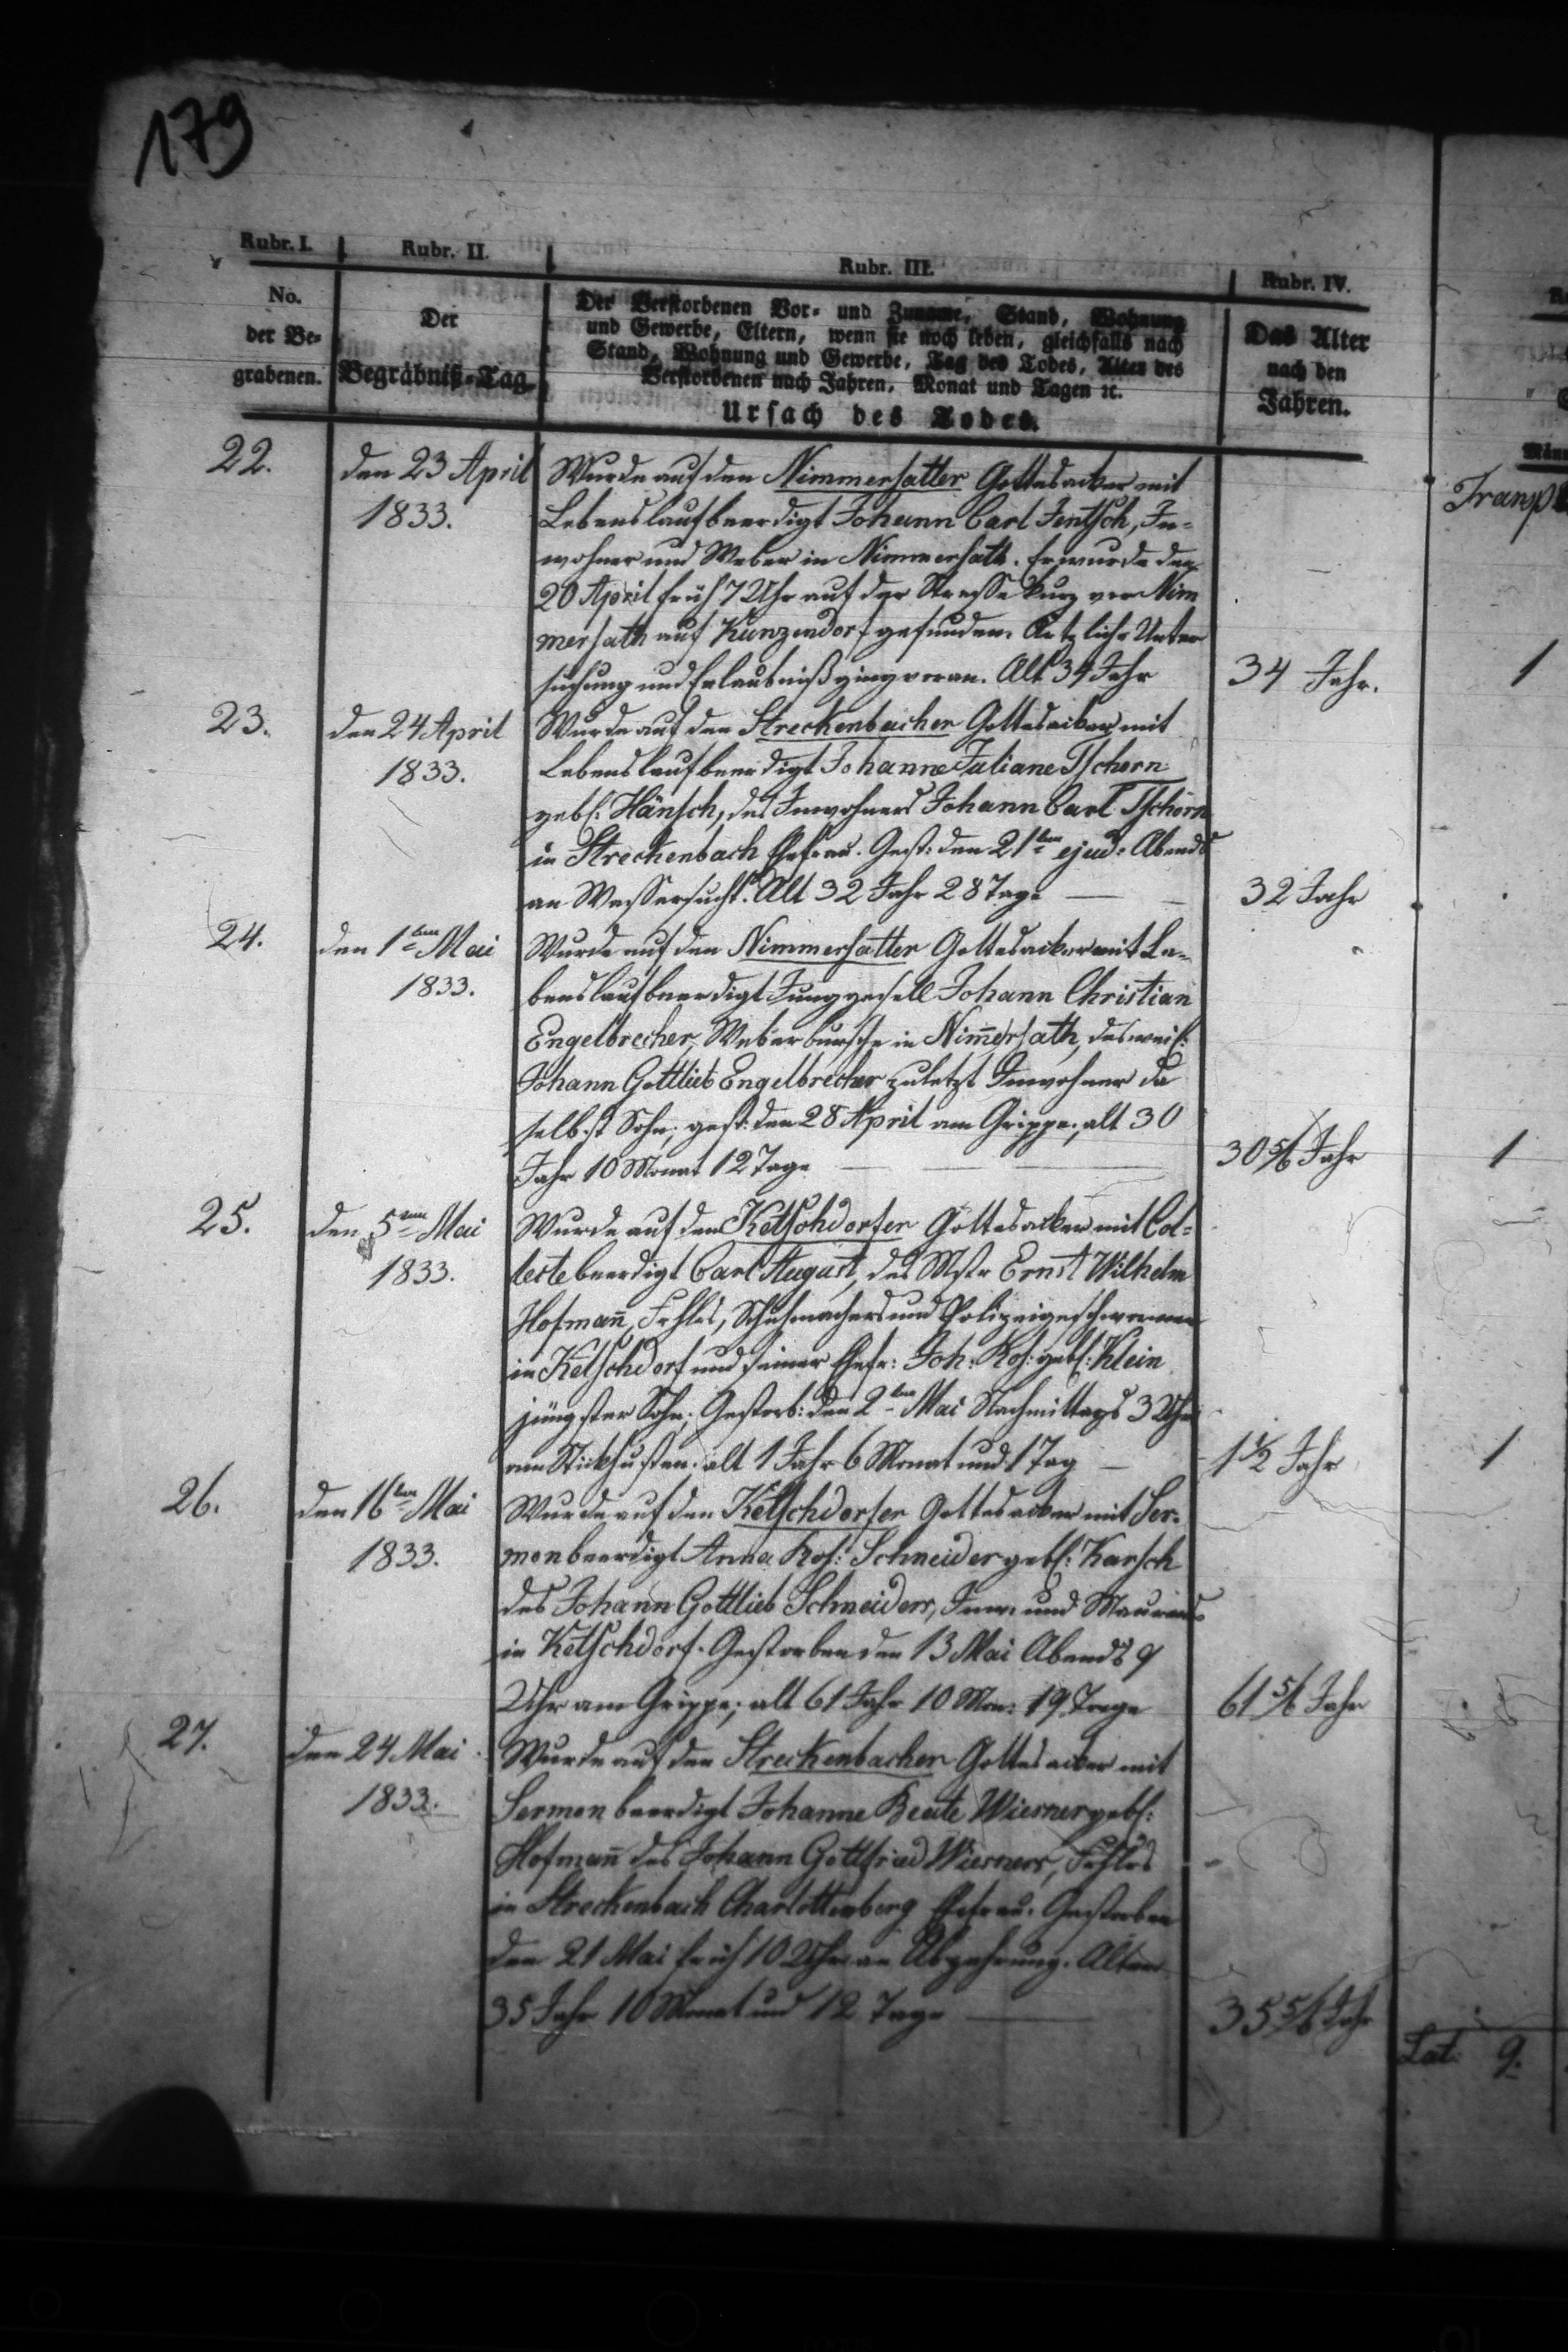 179
Rubr. I.
Rubr. II.
Rubr. III.
Rubr. IV.
No.
der Be-
grabenen.
Der
Begräbniß-Tag.
Der Verstorbenen Vor- und Zuname, Stand, Wohnung
und Gewerbe, Eltern, wenn sie noch leben, gleichfalls nach
Stand, Wohnung und Gewerbe, Tag des Todes, Alter des
Verstorbenen nach Jahren, Monat und Tagen ꝛc.
Ursach des Todes.
Das Alter
nach den
Jahren.
22.
den 23 April
1833.
Wurde auf den Nimmersatter Gottesacker mit
Lebenslauf beerdigt Johann Carl Jentsch, In-
wohner und Weber in Nimmersath. Er wurde den
20 April früh 7 Uhr auf der Strasse kurz vor Nim
mersath auf Kunzendorf gefunden. Aertzliche Unter
suchung und Erlaubniß ging voran. Alt 34 Jahr
34 Jahr.
1
23.
den 24 April
1833.
Wurde auf den Streckenbacher Gottesacker mit
Lebenslauf beerdigt Johanne Juliane Tschorn
gebl: Hänsch, des Inwohners Johann Carl Tschorn
in Streckenbach Ehefrau. Gest: den 21ten ejusd: Abends
an Wassersucht. Alt 32 Jahr 28 Tage
32 Jahr
24.
den 1ten Mai
1833.
Wurde auf den Nimmersatter Gottesacker mit Le-
benslauf beerdigt Junggesell Johann Christian
Engelbrecher, Weberbursche in Nim̄ersath, des weil:
Johann Gottlieb Engelbrecher zuletzt Inwohner da
selbst Sohn; gest: den 28 April am Grippe; alt 30
Jahr 10 Monat 12 Tage
30 5/6 Jahr
1
25.
den 5ten Mai
1833.
Wurde auf den Ketschdorfer Gottesacker mit Col-
lecte beerdigt Carl August, des Mstr Ernst Wilhelm
Hofman̄, Schuhmachers und Polizeigeschworner
in Ketschdorf und seiner Ehefr: Joh: Ros: gebl: Klein
jüngster Sohn; Gestorb: den 2ten Mai Nachmittags 3 Uhr
am Stickhusten; alt 1 Jahr 6 Monat und 1 Tag
1 1/2 Jahr
1
26.
den 16ten Mai
1833.
Wurde auf den Ketschdorfer Gottesacker mit Ser-
mon beerdigt Anna Ros: Schneider gebl: Karsch
des Johann Gottlieb Schneiders, Inw: und Maurers
in Ketschdorf. Gestorben den 13 Mai Abends 9
Uhr am Grippe; alt 61 Jahr 10 Mon: 19 Tage
61 5/6 Jahr
27.
den 24 Mai
1833.
Wurde auf den Streckenbacher Gottesacker mit
Sermon beerdigt Johanne Beate Wiesner gebl:
Hofman̄ des Johann Gottfried Wiesners,
in Streckenbach Charlottenberg Ehefrau. Gestorben
den 21 Mai früh 10 Uhr an Abzehrung. Alter
35 Jahr 10 Monat und 12 Tage
35 5/6 Jahr
Transp
Lat: 9.